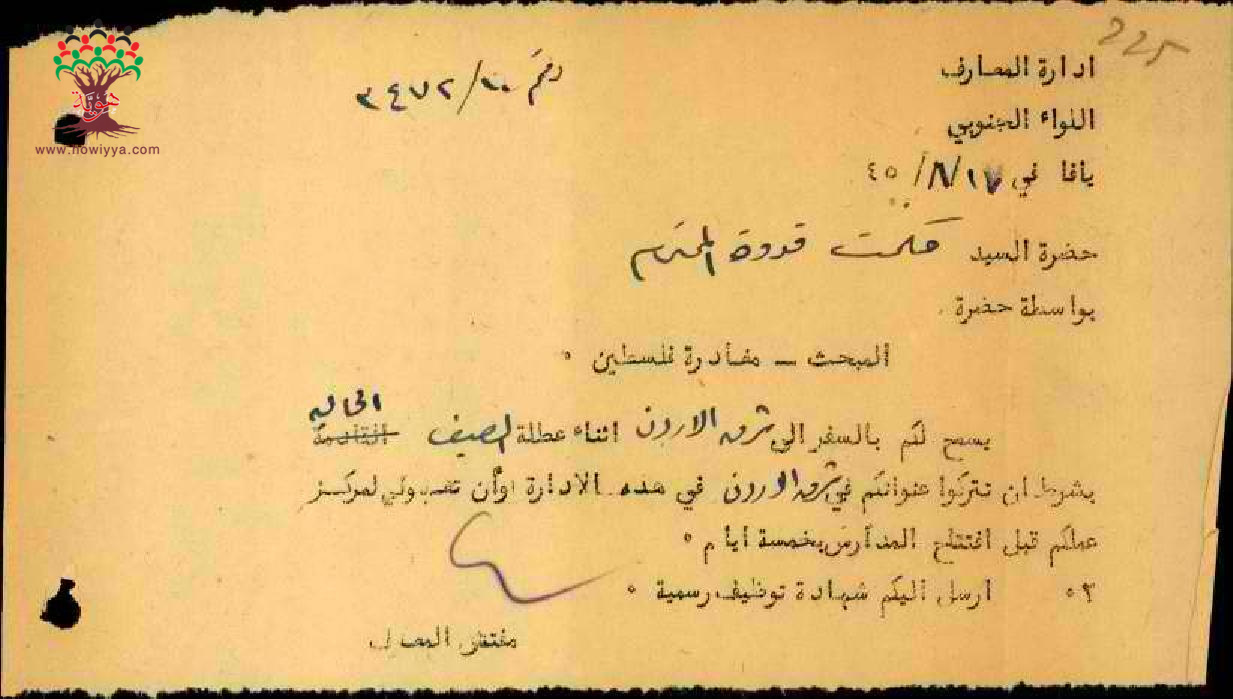 225
ادارة المعارف
اللواء الجنوبي
يافا في ١٧/٨/٤٥
رقم ٣٤٧٢/١٠
هوية
www.howiyya.com
حضرة السيد حكمت قدورة المحترم
بواسطة حضرة
المبحث – مغادرة فلسطين ٠
الحالية
يسمح لكم بالسفر الى شرق الاردن اثناء عطلة الصيف القادمة
بشرط ان تتركوا عنوانكم في شرق الاردن في هذه الادارة وأن تعودوا لمركز
عملكم قبل افتتاح المدارس بخمسة أيام ٠
٣٠ ارسل اليكم شهادة توظيف رسمية ٠
مفتش المعارف